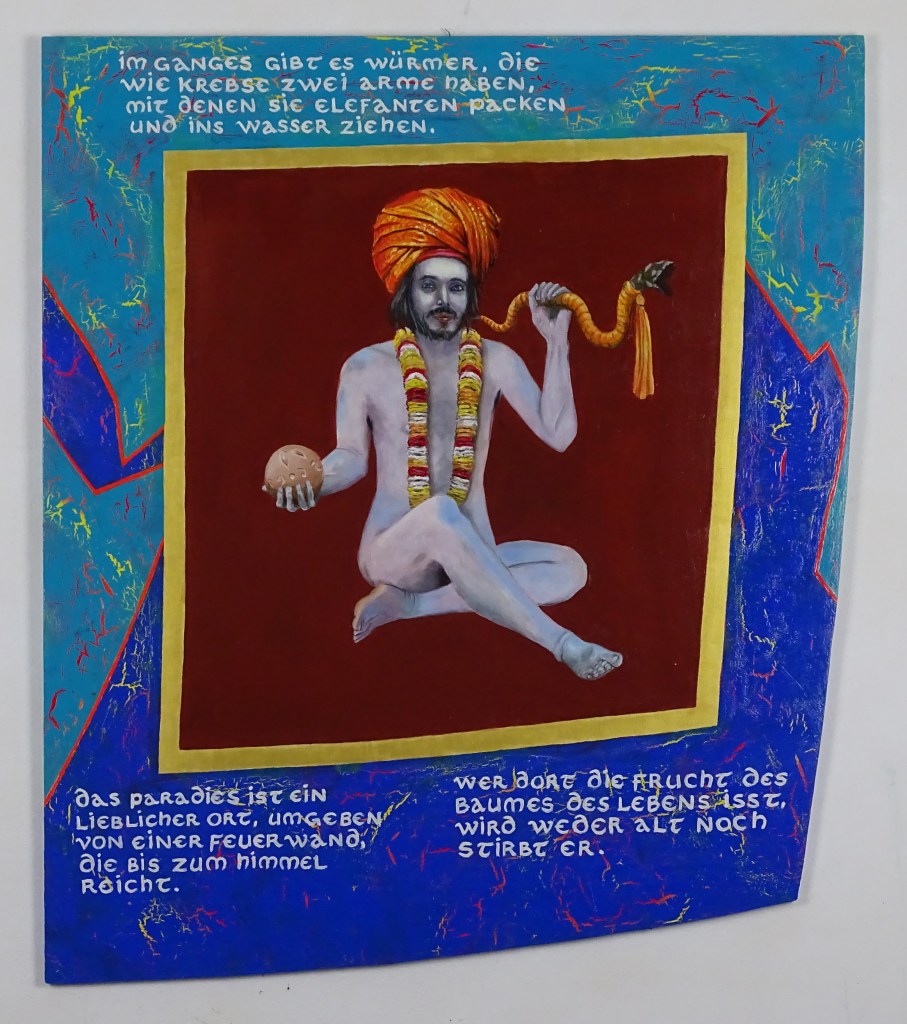 im Ganges gibt es Würmer, die
wie Krebse zwei Arme haben,
mit denen sie Elefanten packen
und ins Wasser ziehen.
das Paradies ist ein
lieblicher Ort, umgeben
von einer Feuerwand,
die bis zum Himmel
reicht.
wer dort die Frucht des
Baumes des Lebens isst,
wird weder alt noch
stirbt er.